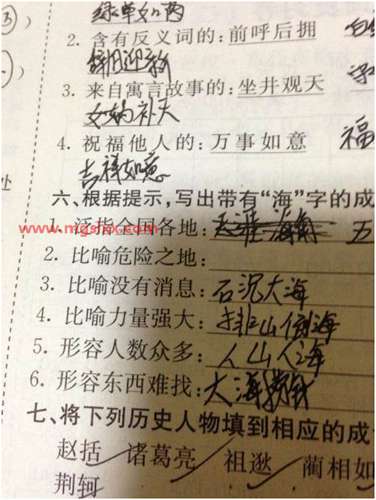 绿草如茵
2. 含有反义词的：前呼后拥
辞旧迎新
3. 来自寓言故事的：坐井观天
女娲补天
4. 祝福他人的：万事如意 福
吉祥如意
处
六、根据提示，写出带有“海”字的成
1. 泛指全国各地：天涯海角 五
2. 比喻危险之地：
3. 比喻没有消息：石沉大海
4. 比喻力量强大：排山倒海
5. 形容人数众多：人山人海
6. 形容东西难找：大海捞针
七、将下列历史人物填到相应的成
赵括 诸葛亮 祖逖 蔺相如
荆轲